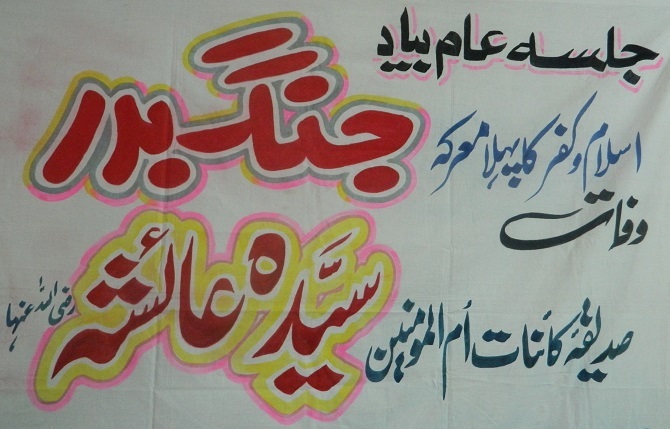 جلسہ عام بیاد
اسلام و کفر کا پہلا معرکہ
جنگ بدر
وفات
صدیقہ کائنات أم المومنین
سیَّدہ عائشہ
رضی اللہ عنہا